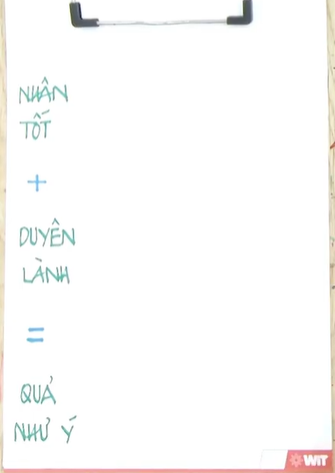 NHÂN
TỐT
+
DUYÊN
LÀNH
=
QUẢ
NHƯ Ý
WIT